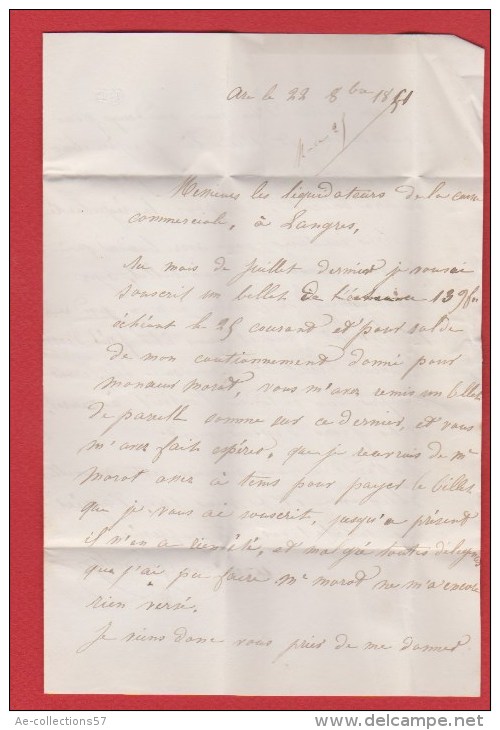 Arc le 22 8bre 1851
Messieurs les liquidateurs de la caisse
commerciale, à Langres,
Au mois de Juillet dernier je vous ai
souscrit un billet de 139 f
échéant le 25 courant et pour solde
de mon cautionnement donné pour
monsieur morot, vous m'avez remis un billet
de pareille somme sur ce dernier, et vous
m'avez fait espérer, que je recevrais de Mr
morot assez à tems pour payer le billet
que je vous ai souscrit, jusqu'a présent
il n'en a rien été, et malgré toutes diligences
que j'ai pu faire Mr morot ne m'a encore
rien versé,
Je viens donc vous prier de me donner
Ae-collections57
www.delcampe.net